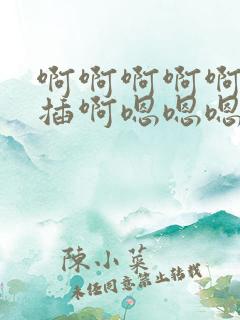 啊啊啊啊啊
插啊嗯嗯嗯
陳小菜
未经同意禁止转载